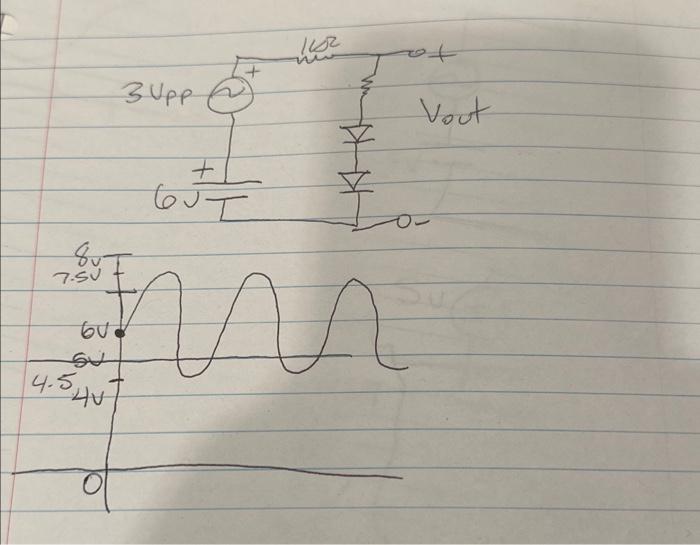 1kΩ
+
+
3Vpp
Vout
+
6V
-
8v
7.5V
6V
5V
4.5
4V
0